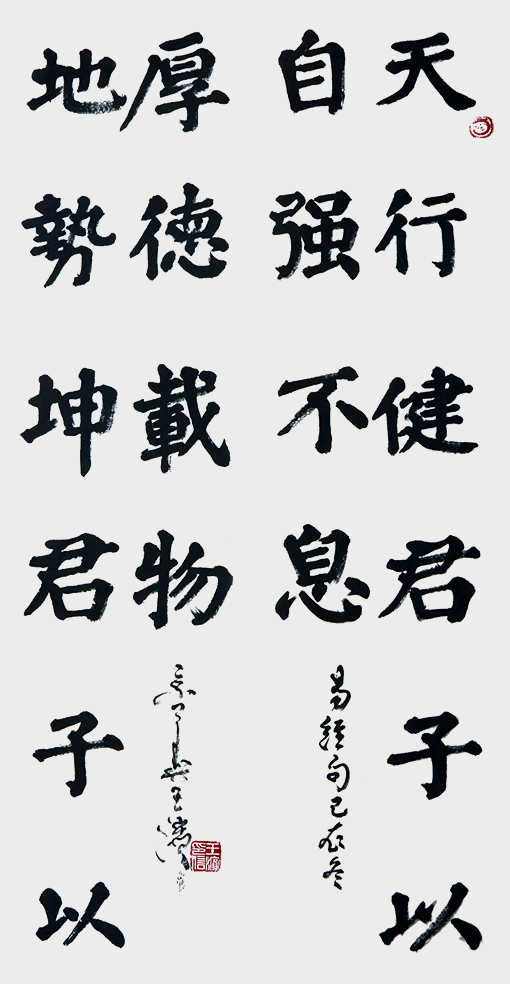 天行健君子以
自强不息
易經句己亥冬
地勢坤君子以
厚德載物